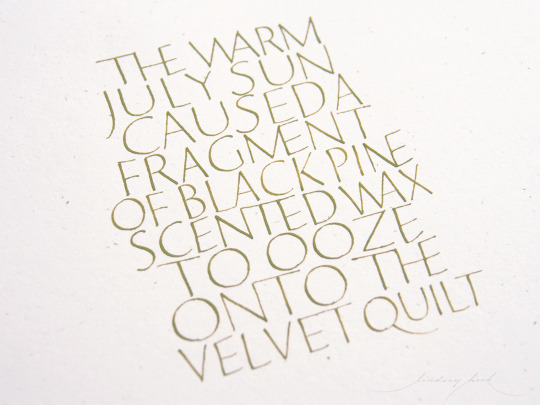 THE WARM
JULY SUN
CAUSED A
FRAGMENT
OF BLACK PINE
SCENTED WAX
TO OOZE
ONTO THE
VELVET QUILT